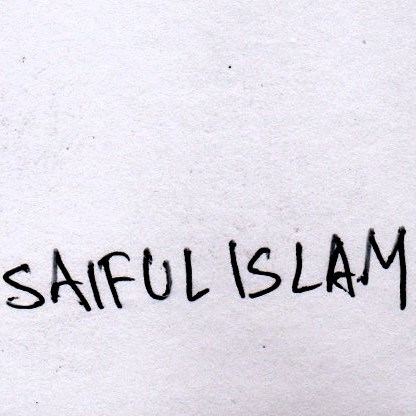 SAIFUL ISLAM